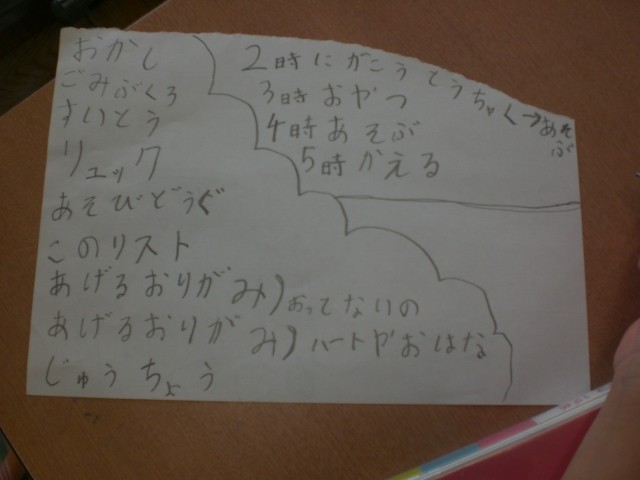 おかし
ごみぶくろ
すいとう
リュック
あそびどうぐ
このリスト
あげるおりがみ)おってないの
あげるおりがみ)ハートやおはな
じゅうちょう
2時にがこうとうちゃく→あそぶ
3時おやつ
4時あそぶ
5時かえる